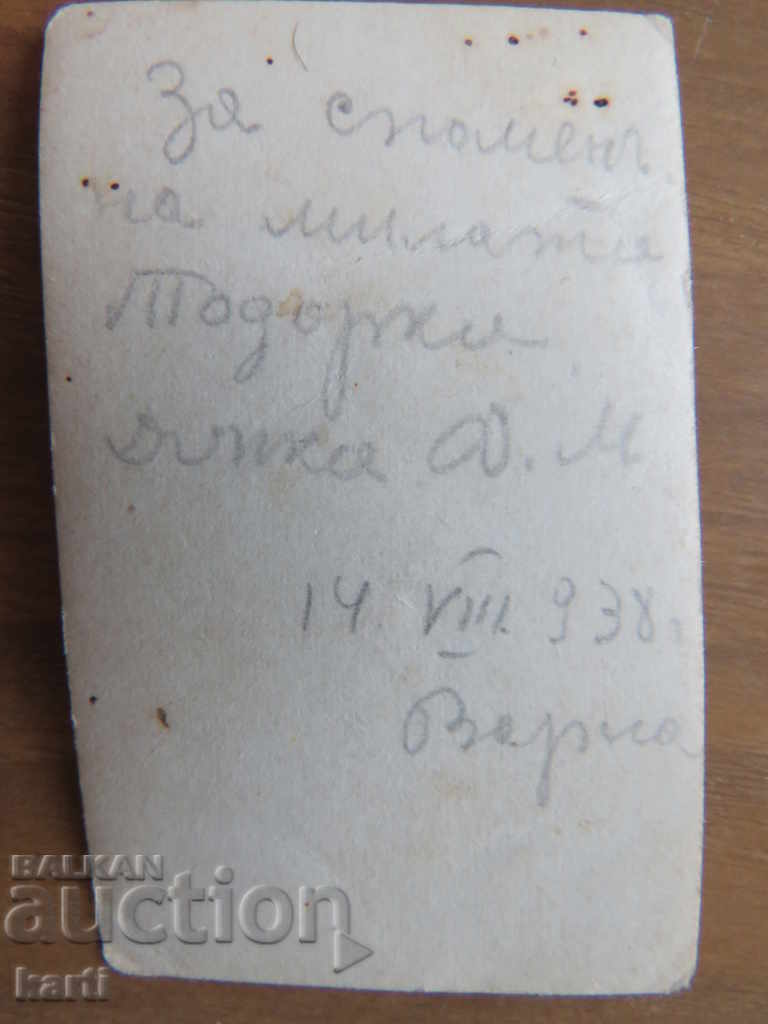 За споменъ
на милата
Тодорка
Ф. М
14. VIII. 938.
Варна
BALKAN
auction
karti